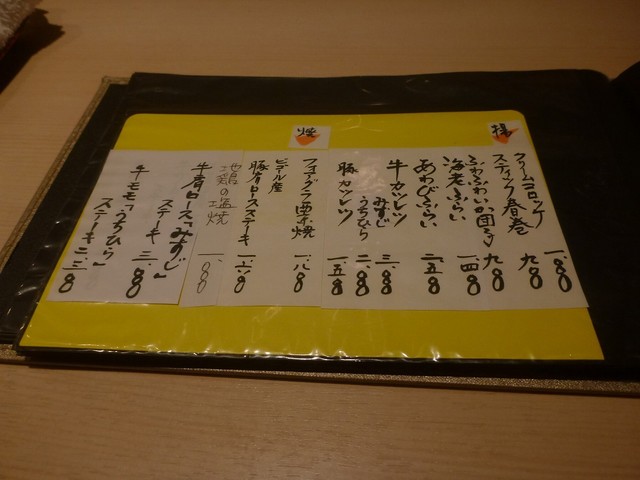 揚
クリームコロッケ 一、八〇〇
スティック春巻 九〇〇
ふわふわいか団子 九〇〇
海老ふらい 一、四〇〇
あわびふらい 二、五〇〇
牛カツレツ
みすじ 三、八〇〇
うちひら 二、八〇〇
豚カツレツ 一、五〇〇
焼
フォアグラ栗焼 一、八〇〇
ビゴール産
豚肩ロースステーキ 一、六〇〇
地鶏の塩焼 一、〇〇
牛肩ロース「みすじ」
ステーキ 三、八〇〇
牛モモ「うちひら」
ステーキ 二、三〇〇